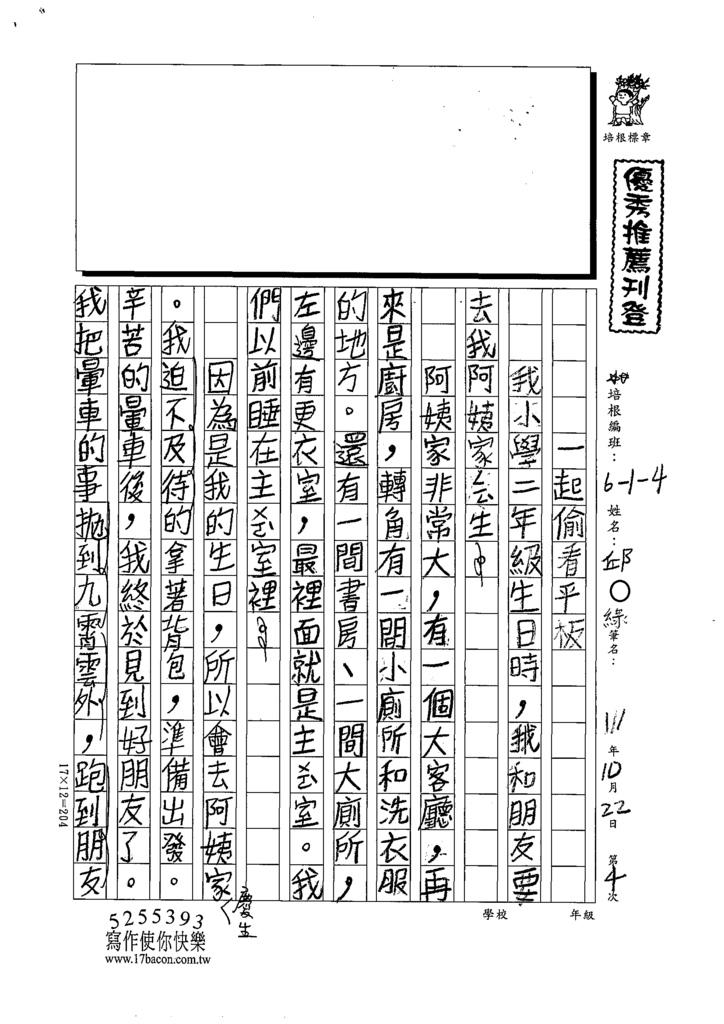 培根標章
優秀推薦刊登
培根編班：6-1-4 姓名：邱○綠 筆名： 111年10月22日 第4次
學校 年級
一起偷看平板
我小學二年級生日時，我和朋友要
去我阿姨家ㄑㄧㄥ生。
阿姨家非常大，有一個大客廳，再
來是廚房，轉角有一間小廁所和洗衣服
的地方。還有一間書房、一間大廁所，
左邊有更衣室，最裡面就是主ㄨㄛ室。我
們以前睡在主ㄨㄛ室裡。
因為是我的生日，所以會去阿姨家慶生
。我迫不及待的拿著背包，準備出發。
辛苦的暈車後，我終於見到好朋友了。
我把暈車的事拋到九霄雲外，跑到朋友
17×12=204
5255393
寫作使你快樂
www.17bacon.com.tw